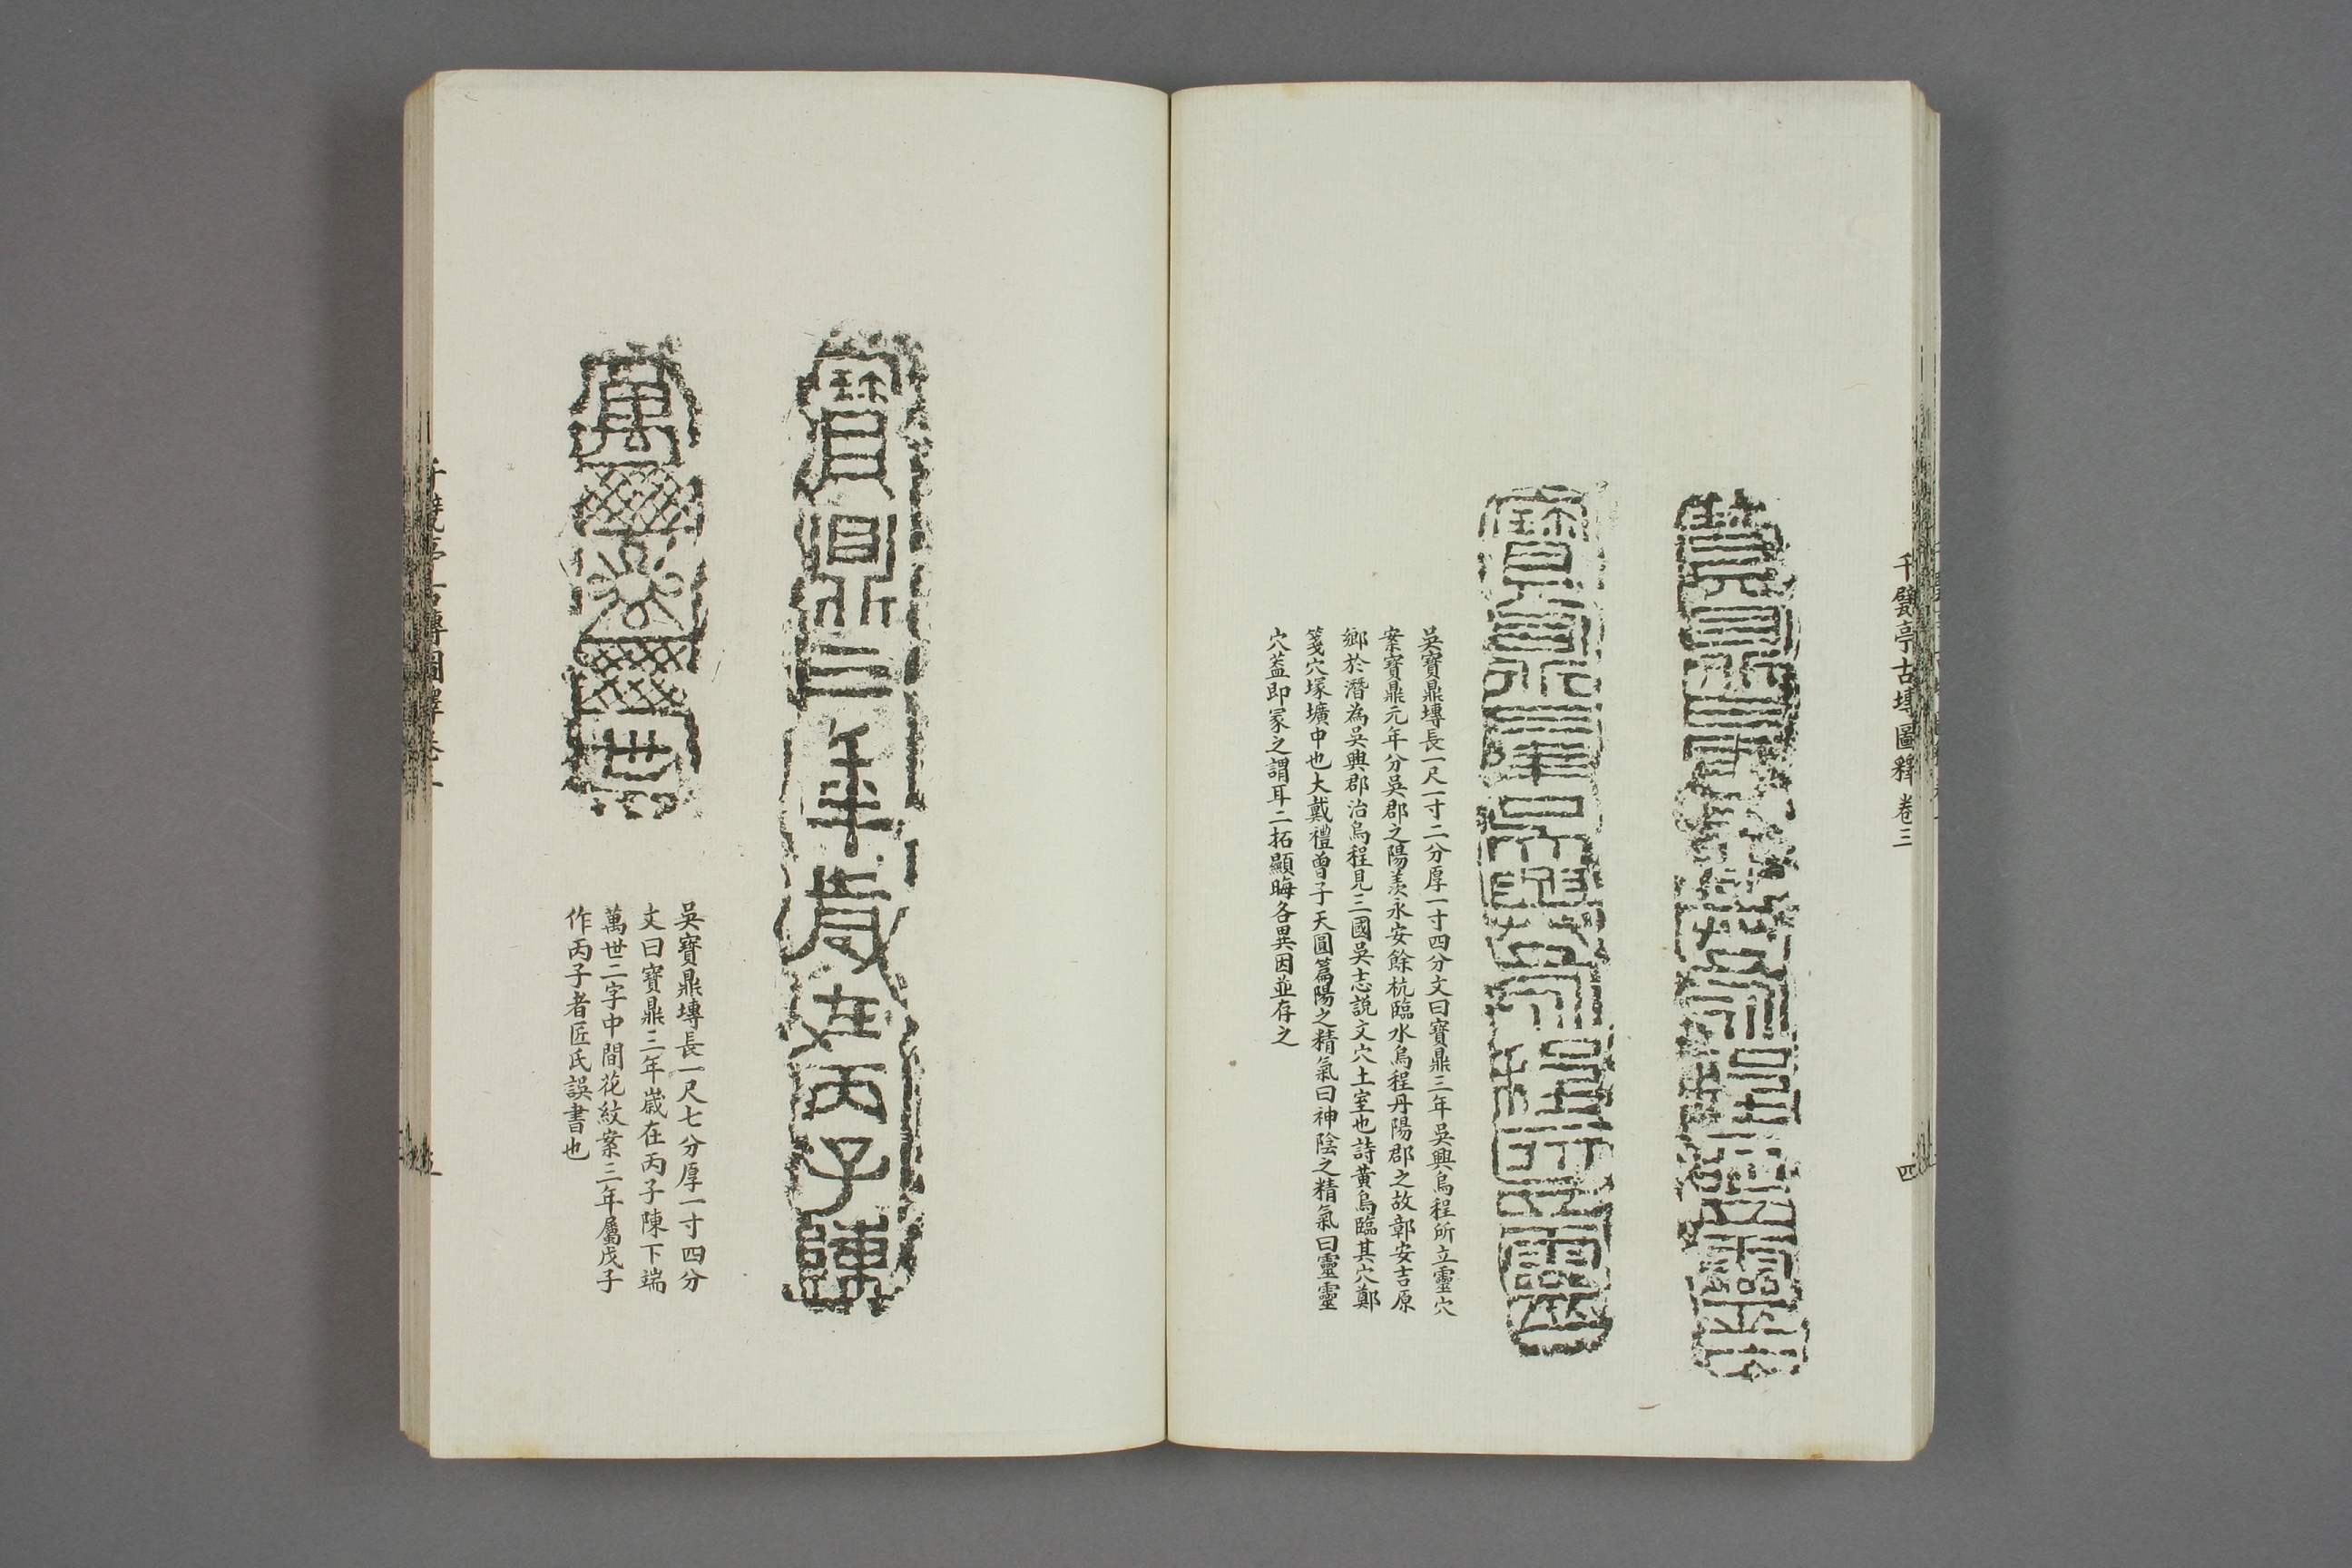 千甓亭古塼圖釋卷三
四
吳寶鼎塼長一尺一寸二分厚一寸四分文曰寶鼎三年吳興烏程所立靈穴
案寶鼎元年分吳郡之陽羨永安餘杭臨水烏程丹陽郡之故鄣安吉原
鄉於潛為吳興郡治烏程見三國吳志說文穴土室也詩黃鳥臨其穴鄭
箋穴塚壙中也大戴禮曾子天圓篇陽之精氣曰神陰之精氣曰靈靈
穴葢即冢之謂耳二拓顯晦各異因並存之
寶鼎三年歲在丙子陳
萬世
吳寶鼎塼長一尺七分厚一寸四分
文曰寶鼎三年歲在丙子陳下端
萬世二字中間花紋案三年屬戊子
作丙子者匠氏誤書也